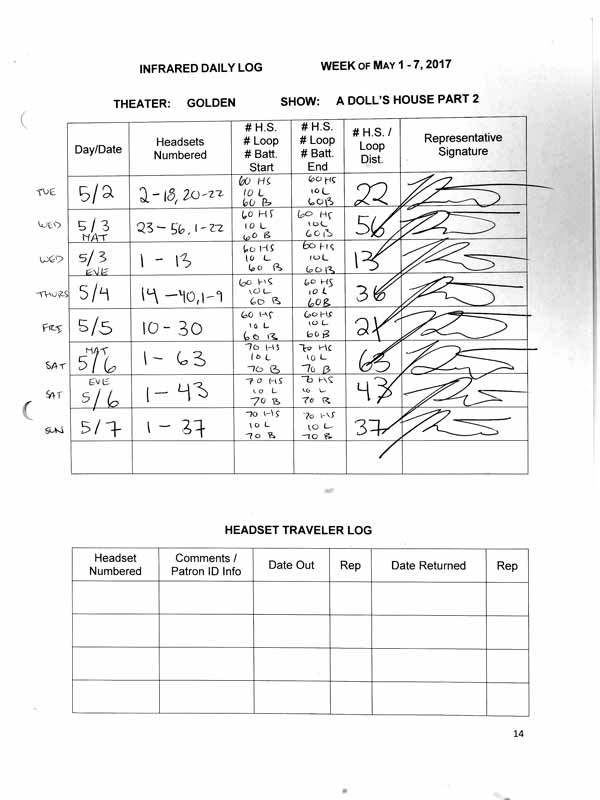 INFRARED DAILY LOG WEEK OF MAY 1 - 7, 2017
THEATER: GOLDEN SHOW: A DOLL'S HOUSE PART 2
Day/Date Headsets Numbered # H.S. # Loop # Batt. Start # H.S. # Loop # Batt. End # H.S. / Loop Dist. Representative Signature
TUE 5/2 2-18, 20-22 60 HS 10 L 60 B 60 HS 10 L 60 B 22
WED 5/3 MAT 23-56, 1-22 60 HS 10 L 60 B 60 HS 10 L 60 B 56
WED 5/3 EVE 1-13 60 HS 10 L 60 B 60 HS 10 L 60 B 13
THURS 5/4 14-40, 1-9 60 HS 10 L 60 B 60 HS 10 L 60 B 36
FRI 5/5 10-30 60 HS 10 L 60 B 60 HS 10 L 60 B 21
SAT MAT 5/6 1-63 70 HS 10 L 70 B 70 HS 10 L 70 B 63
SAT EVE 5/6 1-43 70 HS 10 L 70 B 70 HS 10 L 70 B 43
SUN 5/7 1-37 70 HS 10 L 70 B 70 HS 10 L 70 B 37
HEADSET TRAVELER LOG
Headset Numbered Comments / Patron ID Info Date Out Rep Date Returned Rep
14